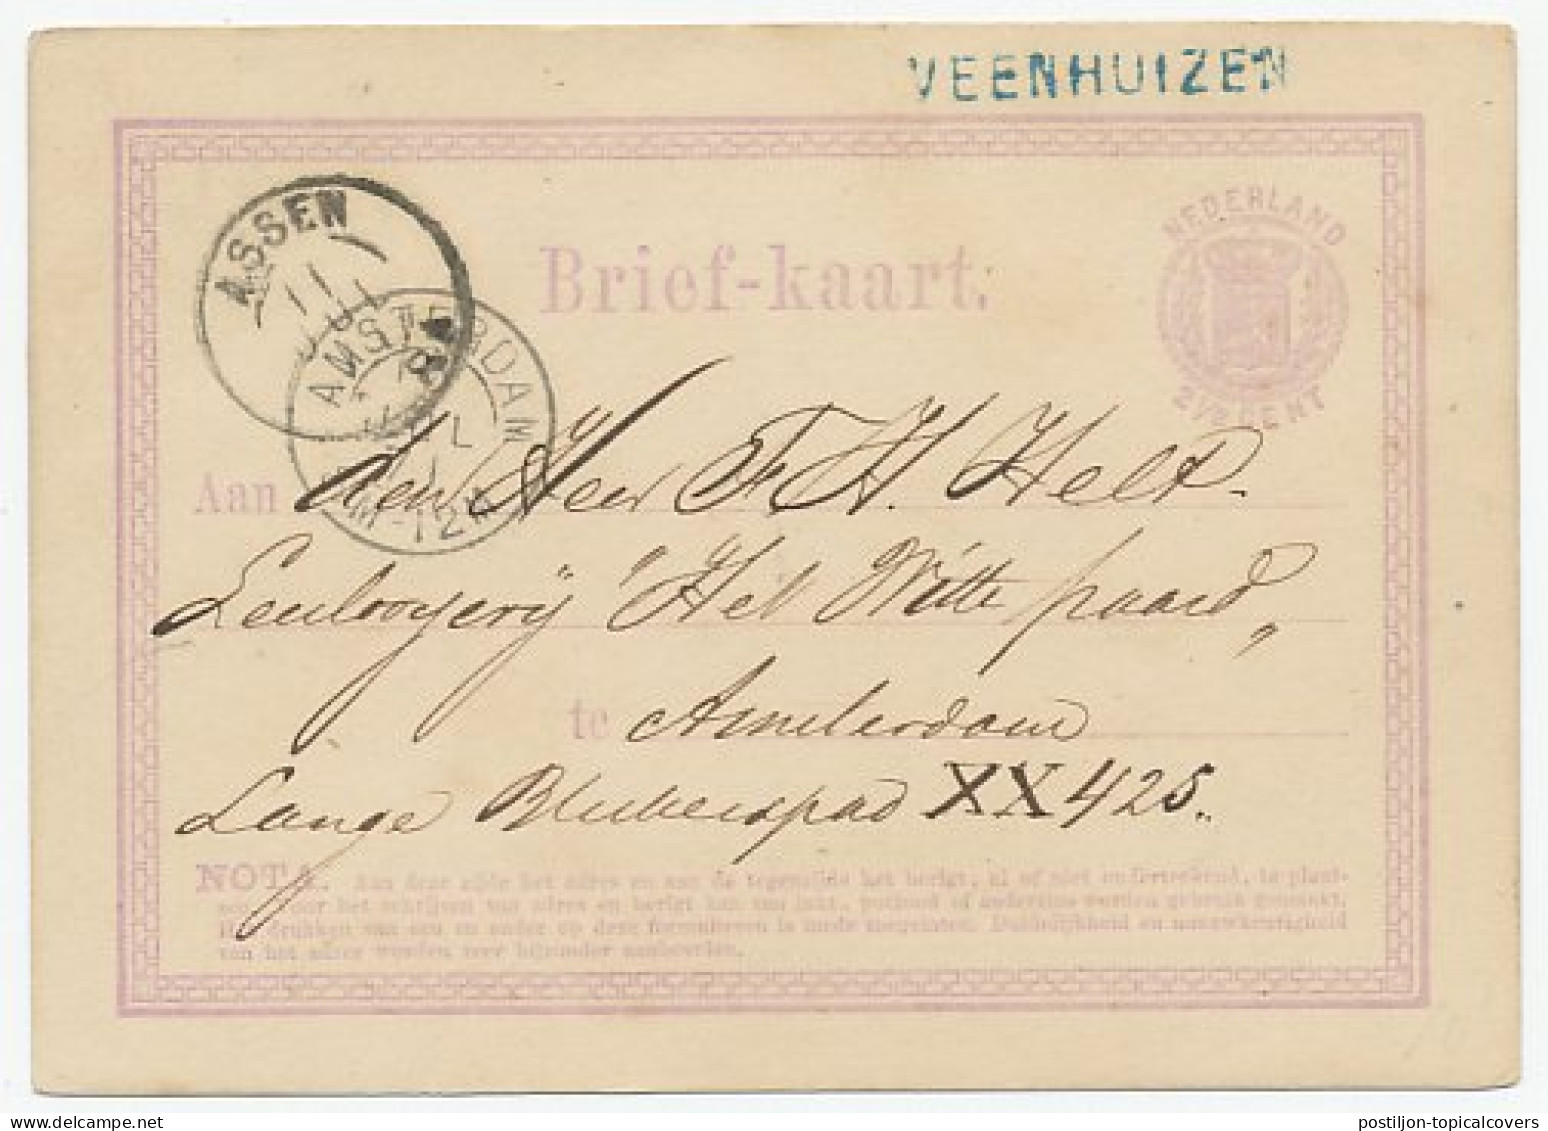 VEENHUIZEN
NEDERLAND
ASSEN
Brief-kaart.
AMSTERDAM
2½ CENT
12M
Aan den Heer F. H. Helt.
"Het Witte paard"
te Amsterdam
Lange XX 425.
NOTA. Aan deze zijde het adres en aan de tegenzijde het berigt, al of niet onderteekend, te plaat-
voor het schrijven van adres en berigt kan van inkt, potlood of anderzins worden gebruik gemaakt.
drukken van een en ander op deze formulieren is mede toegelaten. Duidelijkheid en naauwkeurigheid
van het adres worden zeer bijzonder aanbevolen.
postiljon-topicalcovers